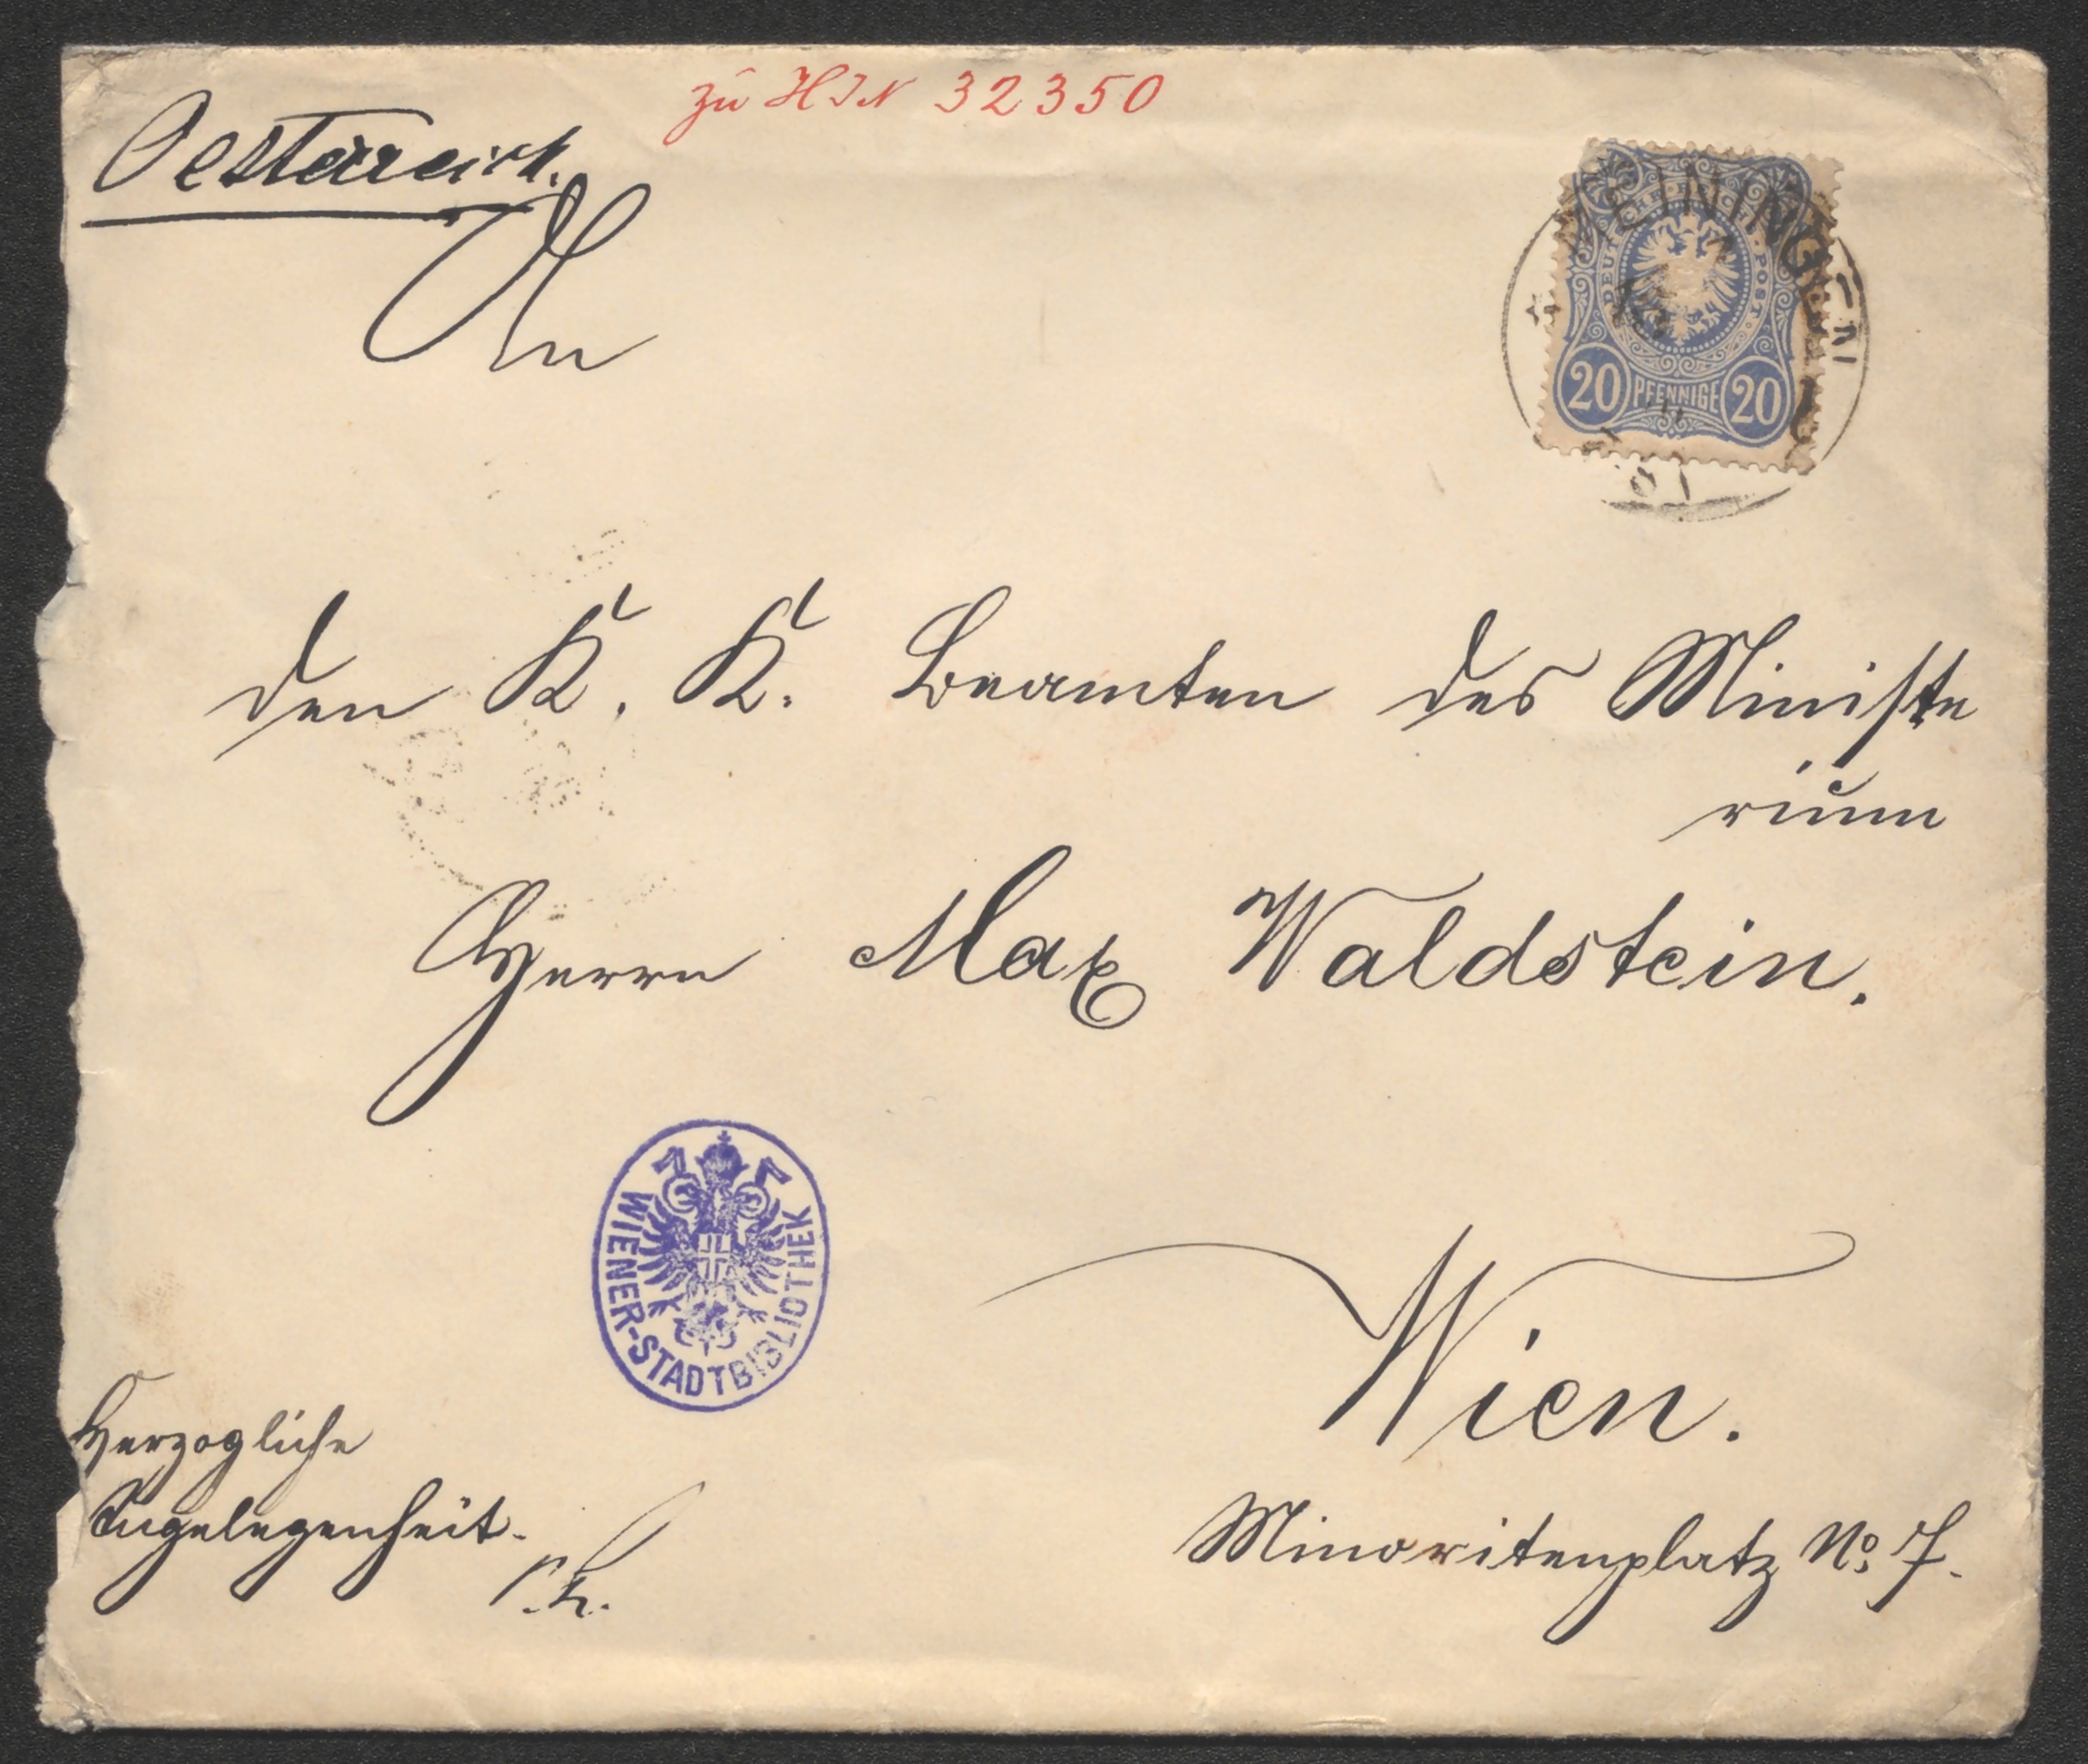 zu HIN 32350
Oesterreich.
An
MEININGEN
DEUTSCHE REICHS-POST
20 PFENNIGE 20
den K. K. Beamten des Ministe
rium
Herrn Max Waldstein.
WIENER-STADTBIBLIOTHEK
Wien.
Herzogliche
Angelegenheit.
Minoritenplatz No. 7.